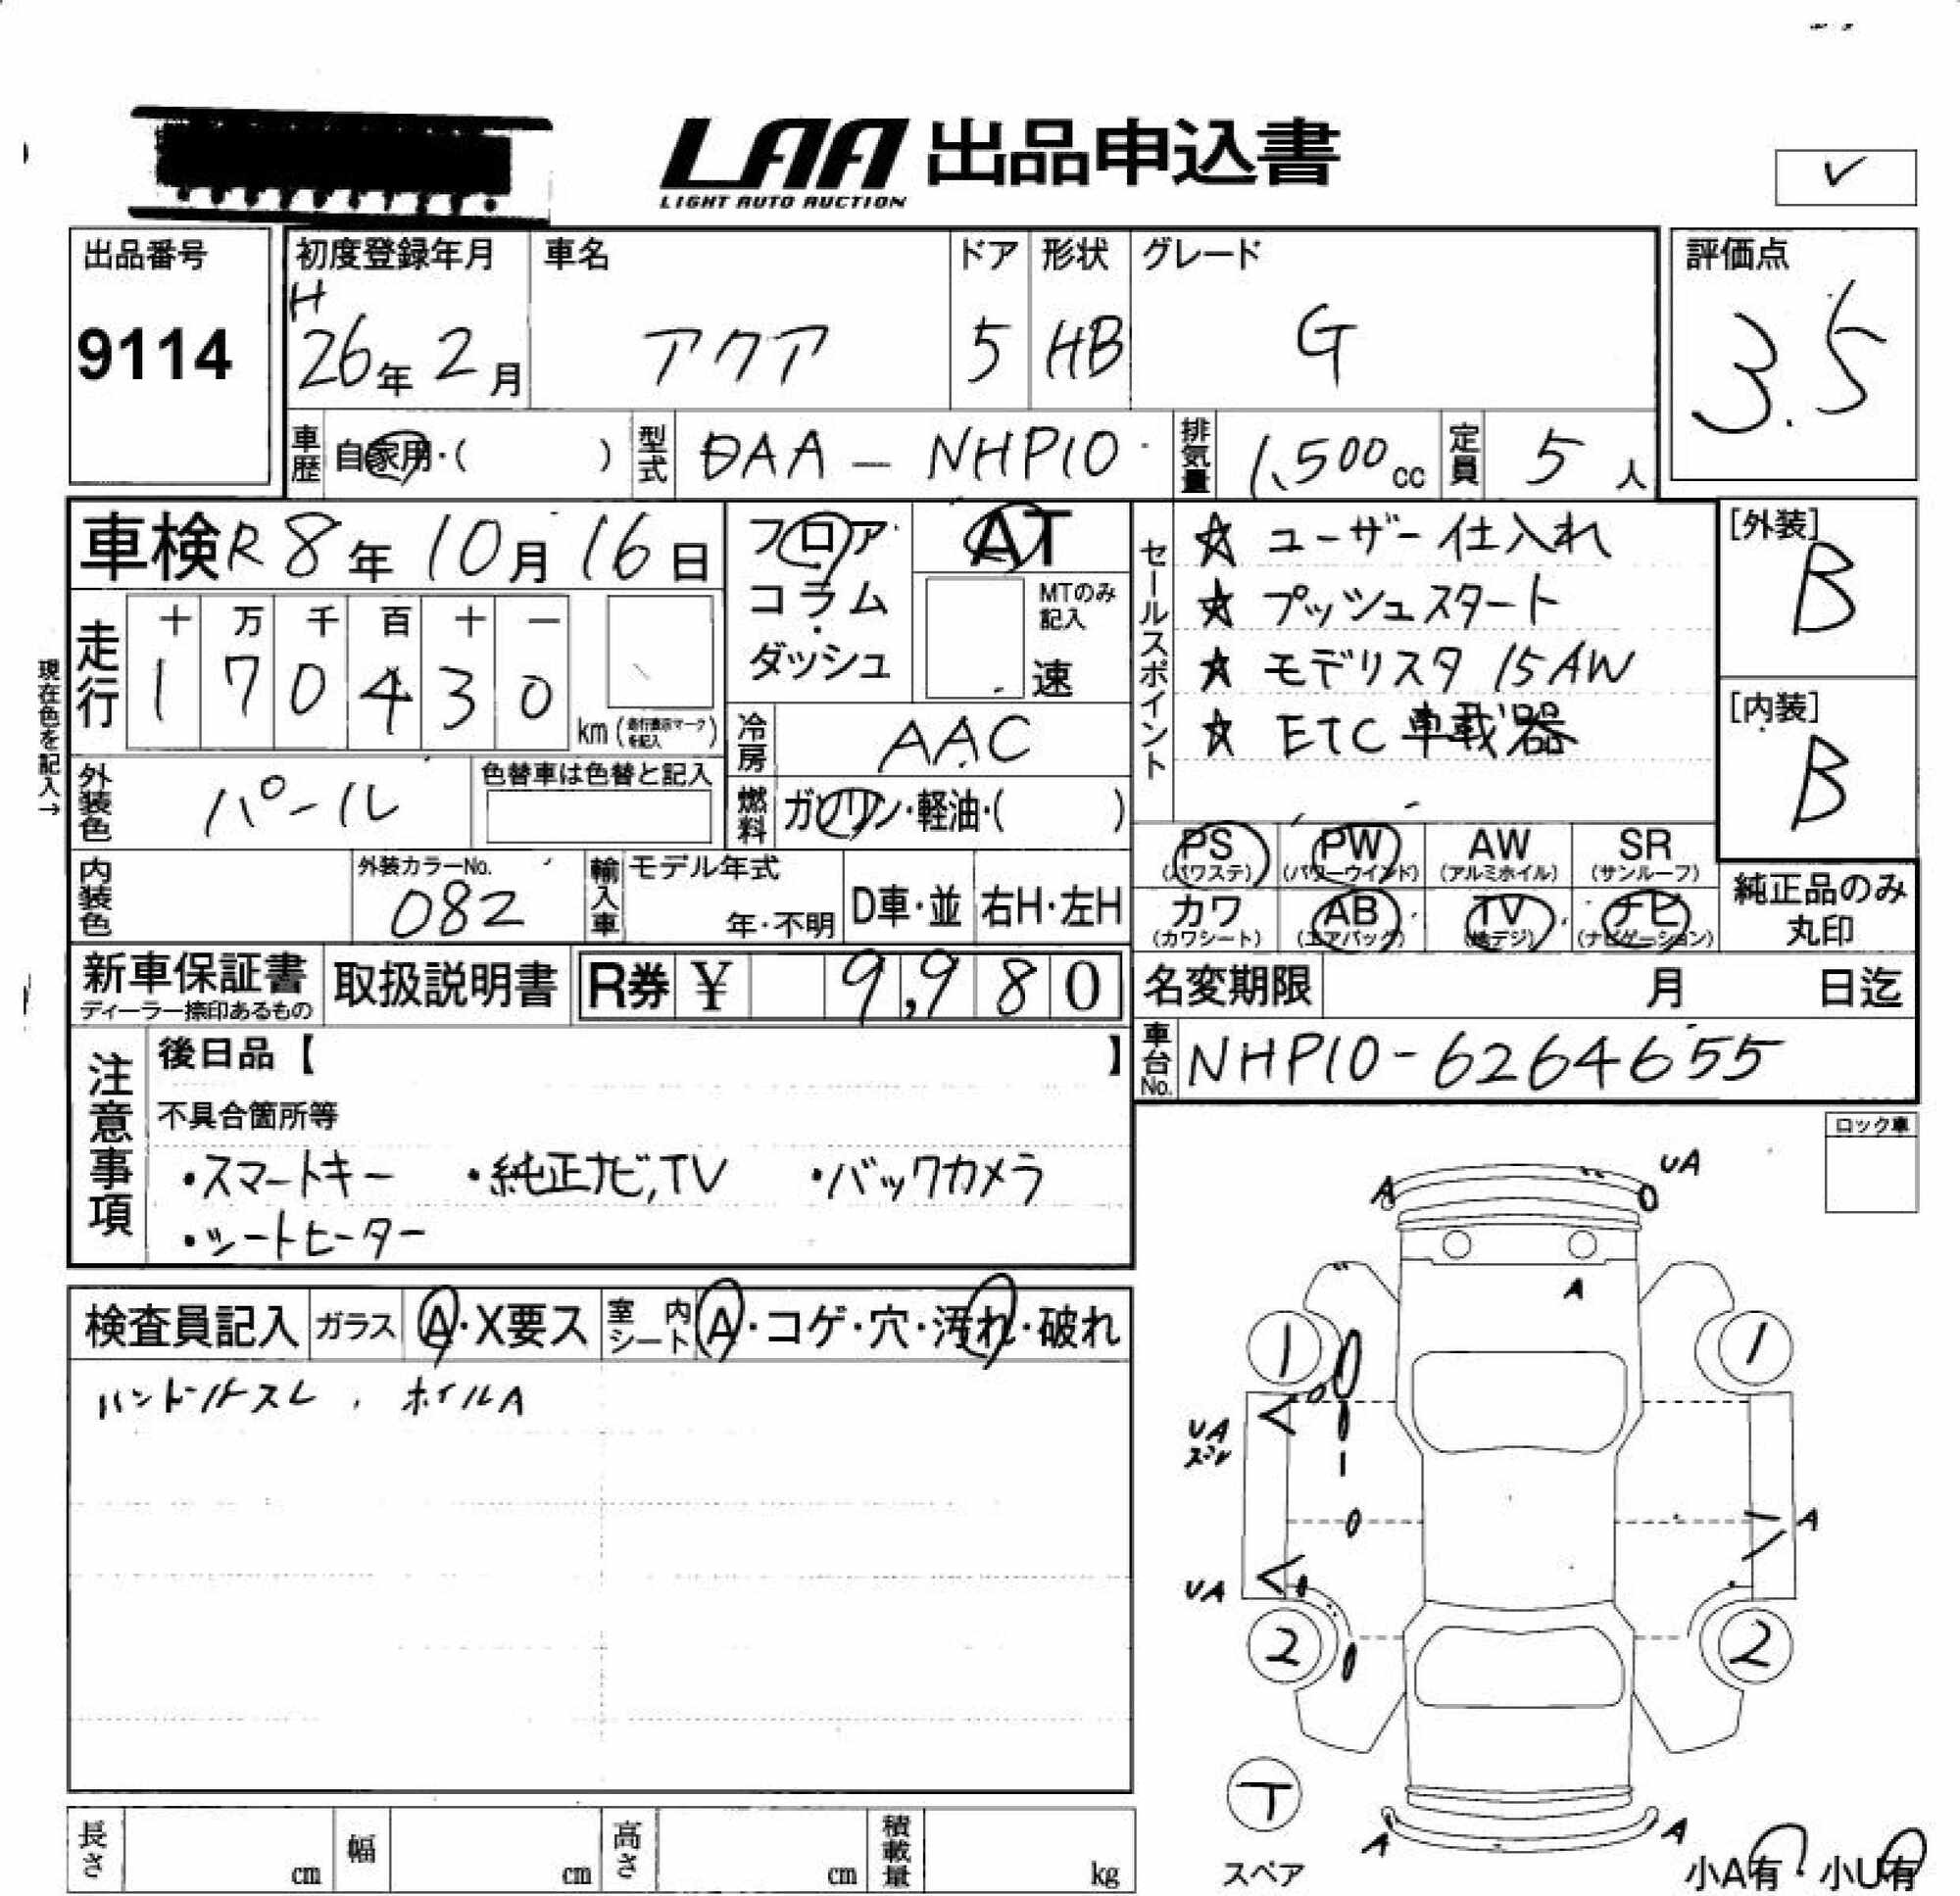 LAA 出品申込書
LIGHT AUTO AUCTION
✓
出品番号
9114
初度登録年月
H
26年 2月
車名
アクア
ドア
5
形状
HB
グレード
G
評価点
3.5
車歴 自家用・( )
型式 DAA－NHP10
排気量 1,500cc
定員 5人
車検 R8年 10月 16日
現在色を記入→
走行
十 万 千 百 十 一
1 7 0 4 3 0 km (走行表示マークを記入)
外装色 パール
色替車は色替と記入
内装色
外装カラーNo.
082
フロア・
コラム
・
ダッシュ
AT
MTのみ記入
速
冷房 AAC
燃料 ガソリン・軽油・( )
輸入車 モデル年式
年・不明
D車・並
右H・左H
セールスポイント
☆ ユーザー仕入れ
☆ プッシュスタート
☆ モデリスタ 15AW
☆ ETC車載器
[外装]
B
[内装]
B
PS (パワステ)
PW (パワーウインド)
AW (アルミホイル)
SR (サンルーフ)
カワ (カワシート)
AB (エアバッグ)
TV (地デジ)
ナビ (ナビゲーション)
純正品のみ
丸印
新車保証書
ディーラー捺印あるもの
取扱説明書
R券 ¥ 9,980
名変期限 月 日迄
車台No. NHP10-6264655
注意事項
後日品【 】
不具合箇所等
・スマートキー ・純正ナビ,TV ・バックカメラ
・シートヒーター
ロック車
検査員記入
ガラス A・X要ス
室内シート A・コゲ・穴・汚れ・破れ
ハンドルスレ , ホイルA
A
UA
A
1
1
UA
A
UA
2
2
T
スペア
A
A
小A有・小U有
長さ cm
幅 cm
高さ cm
積載量 kg